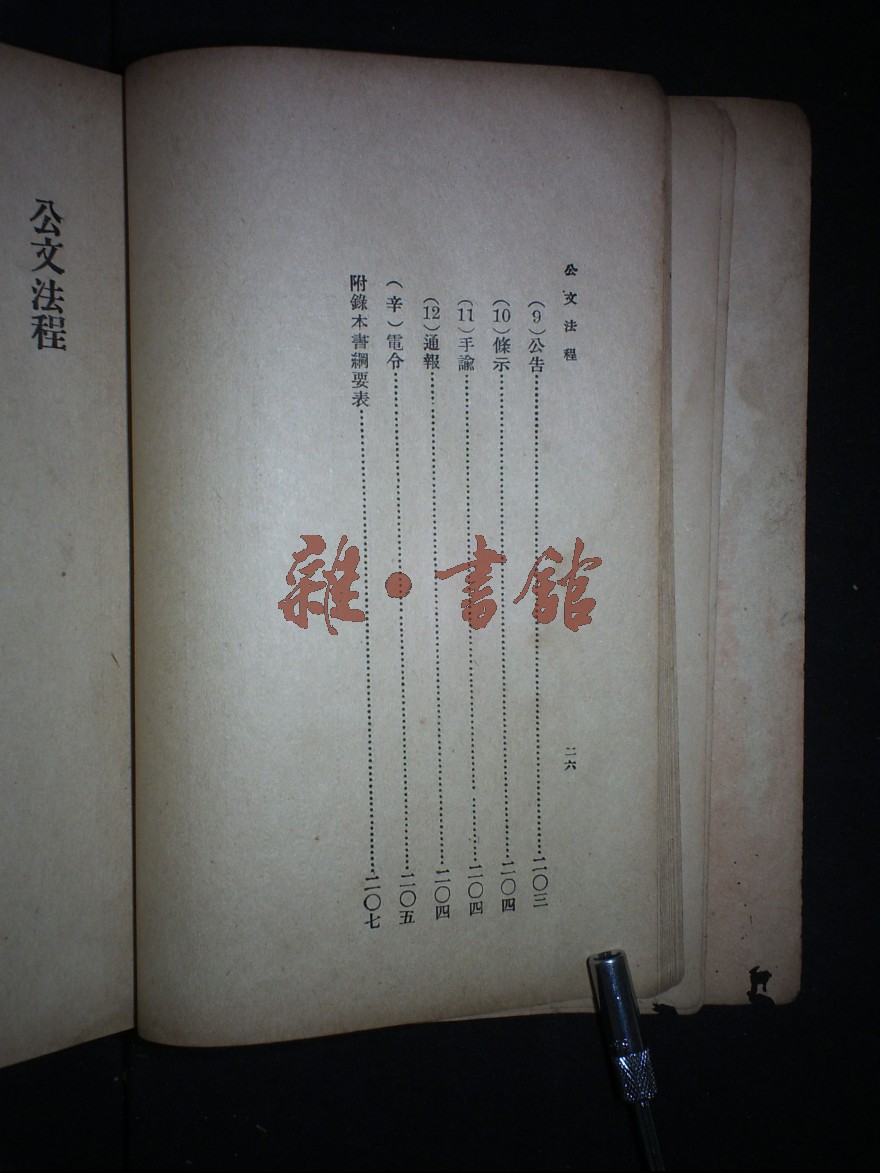 公文法程 二六
(9)公告……二〇三
(10)條示……二〇四
(11)手諭……二〇四
(12)通報……二〇四
(辛)電令……二〇五
附錄本書綱要表……二〇七
公文法程
雜·書館